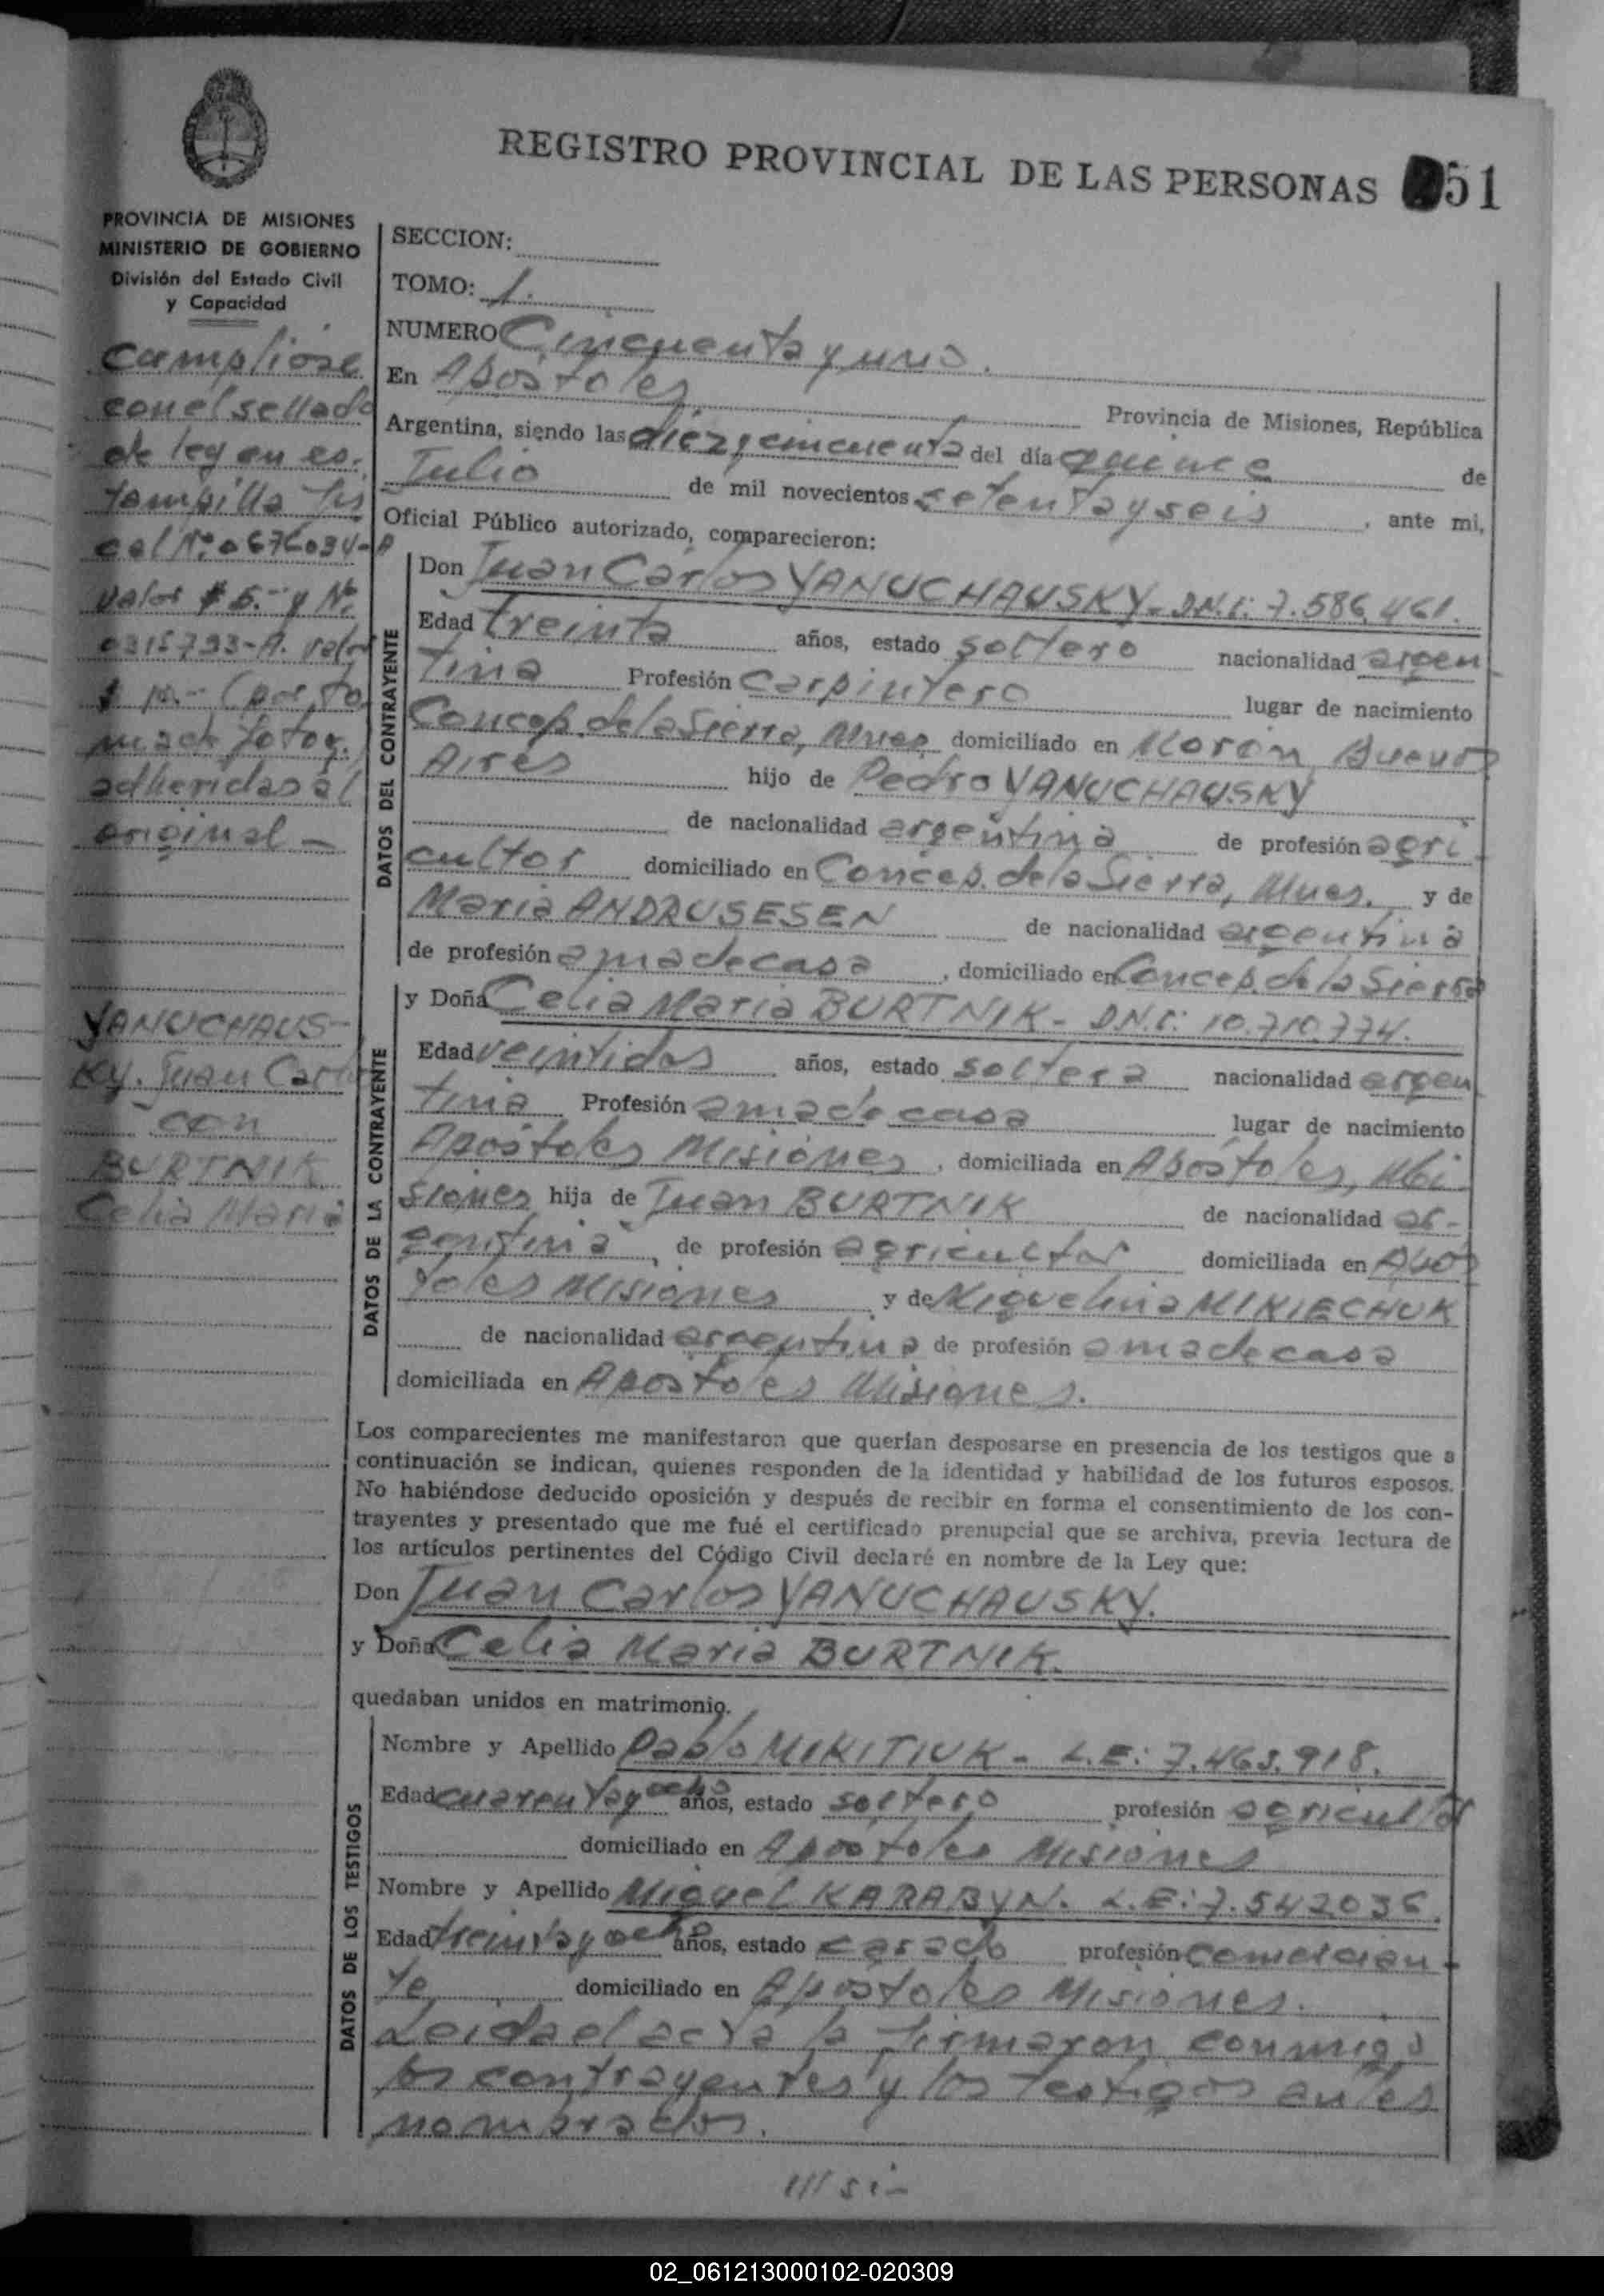 REGISTRO PROVINCIAL DE LAS PERSONAS 51
PROVINCIA DE MISIONES
MINISTERIO DE GOBIERNO
División del Estado Civil
y Capacidad
Cumpliose
con el sellado
de ley en es-
tampilla fis
cal Nº 0676034-A
valor $ 5.- y Nº
0315793-A. valor
adheridas al
original -
YANUCHAUS-
KY. Juan Carlos
con
BURTNIK
Celia Maria
SECCION:
TOMO: 1.
NUMERO Cincuenta y uno.
En Apóstoles Provincia de Misiones, República
Argentina, siendo las diez y cincuenta del día quince de
Julio de mil novecientos setenta y seis, ante mi,
Oficial Público autorizado, comparecieron:
DATOS DEL CONTRAYENTE
Don Juan Carlos YANUCHAUSKY - D.N.I: 7.586.461.
Edad treinta años, estado soltero nacionalidad argen-
tina Profesión Carpintero lugar de nacimiento
Concep. de la Sierra, Mnes. domiciliado en Morón, Buenos
Aires hijo de Pedro YANUCHAUSKY
de nacionalidad argentina de profesión agri-
cultor domiciliado en Concep. de la Sierra, Mnes. y de
Maria ANDRUSESEN de nacionalidad argentina
de profesión ama de casa, domiciliado en Concep. de la Sierra
DATOS DE LA CONTRAYENTE
y Doña Celia Maria BURTNIK - D.N.I: 10.710.774.
Edad veintidos años, estado soltera nacionalidad argen
tina Profesión ama de casa lugar de nacimiento
Apóstoles Misiones, domiciliada en Apóstoles, Mi-
siones hija de Juan BURTNIK de nacionalidad ar-
gentina, de profesión agricultor domiciliada en Apos
toles Misiones y de Miguelina MIKIECHUK
de nacionalidad argentina de profesión ama de casa
domiciliada en Apóstoles Misiones.
Los comparecientes me manifestaron que querían desposarse en presencia de los testigos que a
continuación se indican, quienes responden de la identidad y habilidad de los futuros esposos.
No habiéndose deducido oposición y después de recibir en forma el consentimiento de los con-
trayentes y presentado que me fué el certificado prenupcial que se archiva, previa lectura de
los artículos pertinentes del Código Civil declaré en nombre de la Ley que:
Don Juan Carlos YANUCHAUSKY.
y Doña Celia Maria BURTNIK.
quedaban unidos en matrimonio.
DATOS DE LOS TESTIGOS
Nombre y Apellido Pablo MIKITIUK - L.E: 7.463.918.
Edad cuarenta y ocho años, estado soltero profesión agricultor
domiciliado en Apostoles Misiones
Nombre y Apellido Miguel KARABYN. L.E: 7.542036.
Edad treinta y ocho años, estado casado profesión comercian-
te domiciliado en Apóstoles Misiones.
Leida el acta la firmaron conmigo
los contrayentes y los testigos antes
nombrados.
///si-
02_061213000102-020309